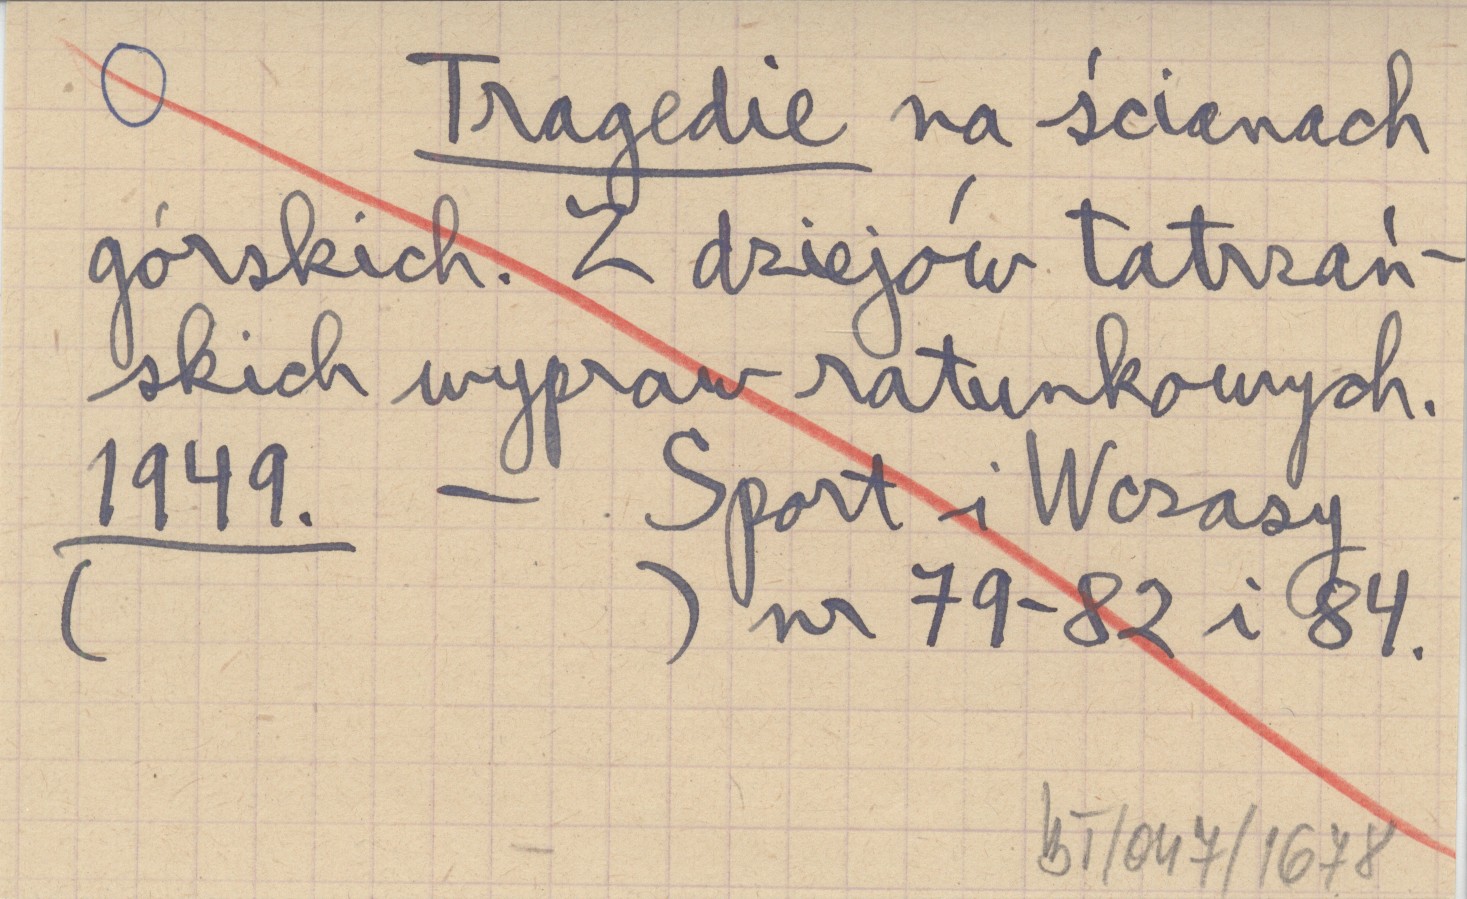 Tragedie na ścianach
górskich. Z dziejów tatrzań-
skich wypraw ratunkowych.
1949. — Sport i Wczasy
( ) nr 79-82 i 84.
BT/047/1678